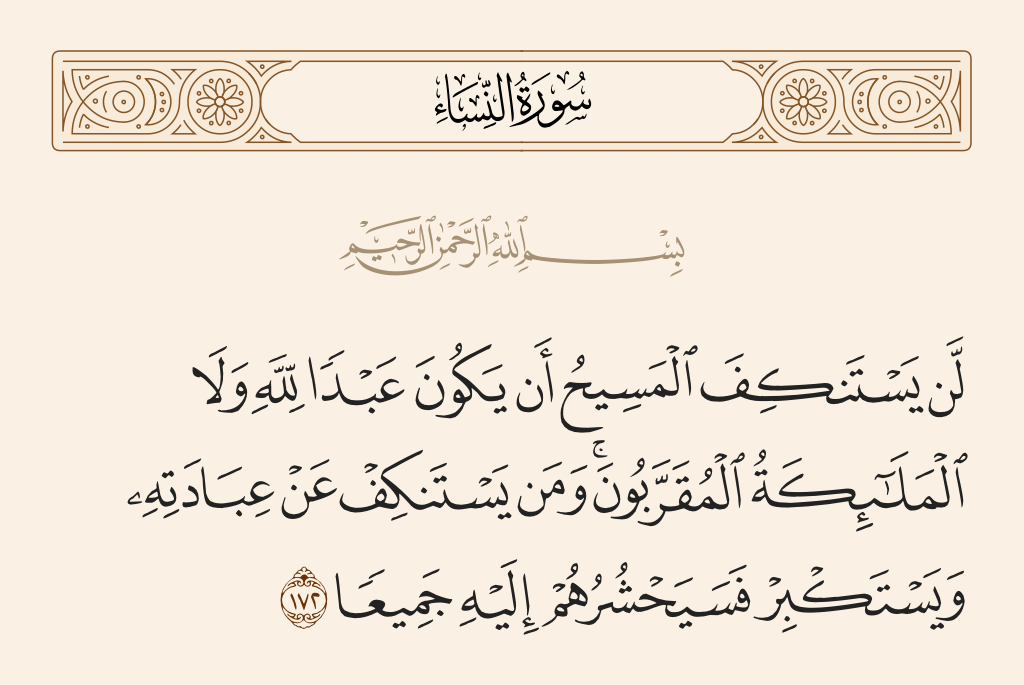 سُورَةُ النِّسَاءِ
بِسْمِ ٱللَّهِ ٱلرَّحْمَٰنِ ٱلرَّحِيمِ
لَّن يَسْتَنكِفَ ٱلْمَسِيحُ أَن يَكُونَ عَبْدًا لِّلَّهِ وَلَا
ٱلْمَلَـٰٓئِكَةُ ٱلْمُقَرَّبُونَ ۚ وَمَن يَسْتَنكِفْ عَنْ عِبَادَتِهِۦ
وَيَسْتَكْبِرْ فَسَيَحْشُرُهُمْ إِلَيْهِ جَمِيعًا ١٧٢